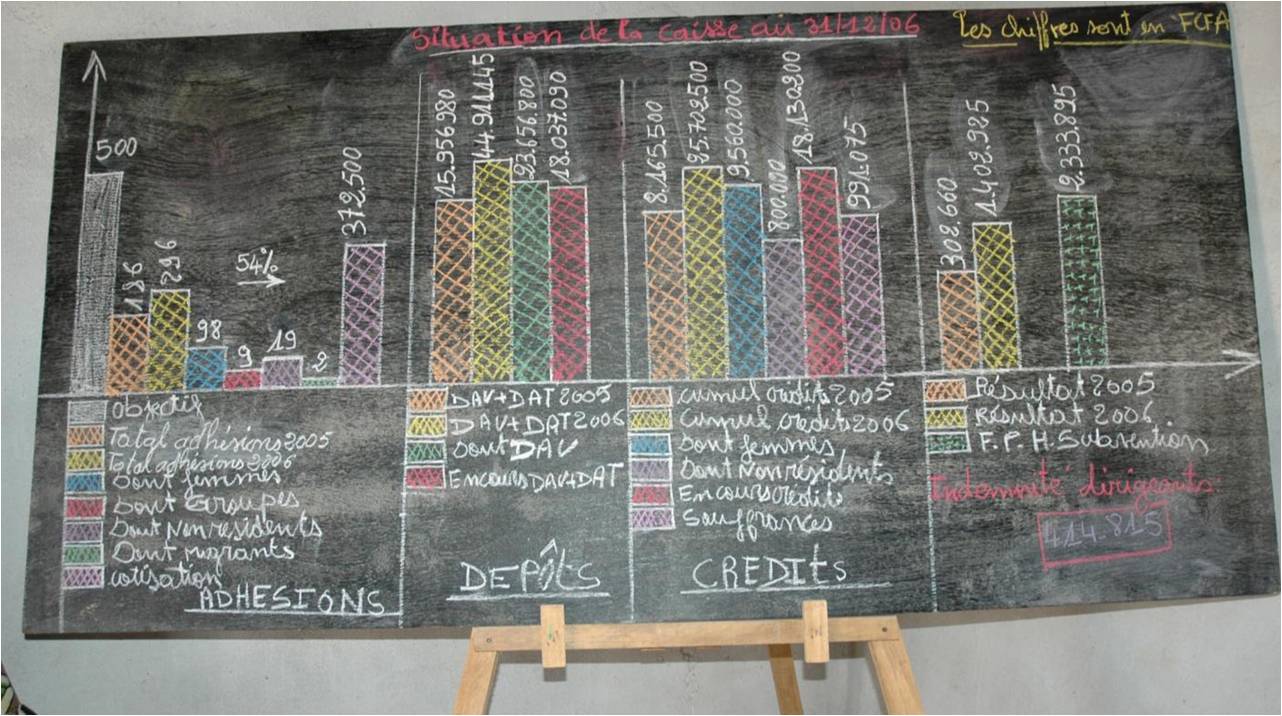 Situation de la caisse au 31/12/06
Les chiffres sont en FCFA
500
186
296
98
9
54%
19
2
372.500
Objectif
Total adhésions 2005
Total adhésions 2006
Dont femmes
Dont Groupes
Dont Non residents
Dont migrants
cotisation
ADHESIONS
15.956980
44.941145
23.656.800
18.037.090
DAV+DAT 2005
DAV+DAT 2006
Dont DAV
Encours DAV+DAT
DEPÔts
8.165.500
25.702500
9.560.000
800.000
18.130200
991.075
cumul crédits 2005
Cumul crédits 2006
Dont femmes
Dont Non résidents
En cours crédits
Souffrances
CREDIts
302.660
1.402.925
2.333.895
Résultat 2005
Résultat 2006
F.P.H. Subvention
Indemnité dirigeants:
414.815